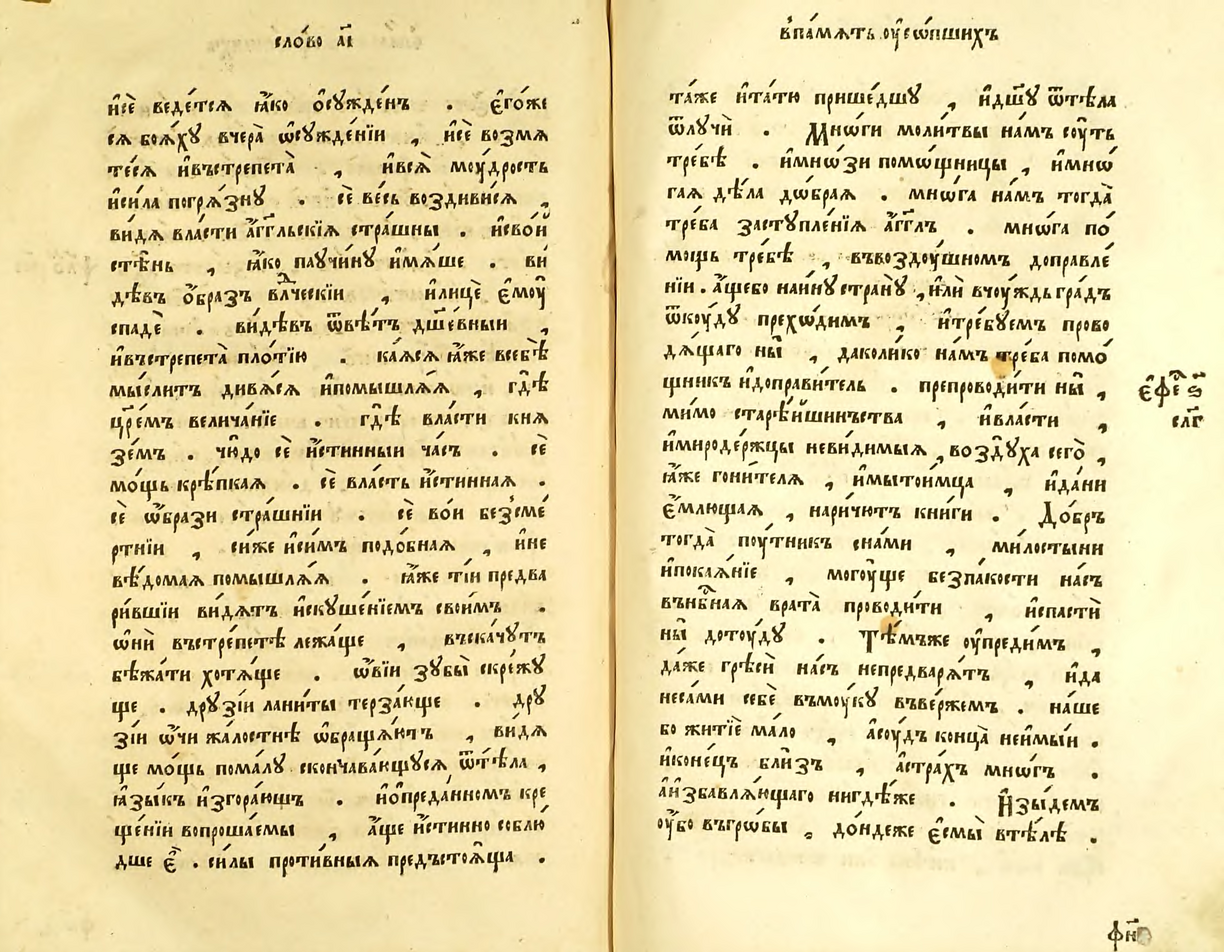 сло́во а҃і
и҆сѐ веде́тсѧ ꙗ҆́ко ѻ҆сꙋжде́нъ . є҆го́же
сѧ боѧ́хꙋ вчера̀ ѡ҆сꙋжде́нїи , и҆сѐ возмѧ
те́сѧ и҆въстрепета̀ , и҆всѧ̀ моу́дрость
и҆си́ла погрѧ́знꙋ . сѐ ве́сь воздиви́сѧ ,
ви́дѧ вла́сти а҆́гг҃льскїѧ стра́шны . и҆своѝ
стѣ́нь , ꙗ҆́ко паꙋчи́нꙋ и҆мѧ́ше . ви
дѣ́въ ѻ҆́бразъ вл҃ческїи , и҆лицѐ є҆моу̀
спадѐ . ви́дѣвъ ѿвѣ́тъ дш҃е́вныи ,
и҆въстрепета̀ пло́тїю . ка́ѧсѧ ꙗ҆́же всебѣ̀
мы́слитъ дивѧ́сѧ и҆помышлѧ́ѧ , гдѣ̀
цр҃е́мъ велича́нїе . гдѣ̀ вла́сти кнѧ
зе́мъ . чю́до сѐ и҆́стинныи ча́съ . сѐ
мо́щь крѣ́пкаѧ . сѐ вла́сть и҆́стиннаѧ .
сѐ ѡ҆́брази стра́шнїи . сѐ во́и без̾сме́
ртнїи , си́же и҆си́мъ подо́бнаѧ , и҆не
вѣ́домаѧ помышлѧ́ѧ . ꙗ҆́же ті́и предва
ри́вшїи ви́дѧтъ и҆скꙋше́нїемъ свои́мъ .
ѡ҆нѝ въстре́петѣ лежа́ще , въска́чꙋтъ
бѣжа́ти хотѧ́ще . ѡ҆́вїи зꙋбы̀ скре́жꙋ
ще . дрꙋзі́и лани́ты терза́юще . дрꙋ
зі́и ѡ҆́чи жа́лостнѣ ѡ҆браща́ютъ , ви́дѧ
ще мо́щь пома́лꙋ сконча́вающꙋсѧ ѿтѣ́ла ,
ꙗ҆зы́къ и҆згора́ющъ . и҆ѻ҆пре́данномъ кре
ще́нїи вопроша́емы , а҆́ще и҆́стинно соблю́
дше є҆̀ . си́лы проти́вныѧ предъстоѧ́ща .
впа́мѧть оу҆со́пшихъ
та́же и҆та́тю прише́дшꙋ , и҆дш҃ꙋ ѿтѣ́ла
ѿлꙋчѝ . Мнѡ́ги моли́твы на́мъ соу́ть
тре́бѣ . и҆мнѡ́зи помѡ́щницы , и҆мнѡ́
гаѧ дѣ́ла дѡ́браѧ . мнѡ́га на́мъ тогда̀
тре́ба застꙋпле́нїѧ а҆́гг҃лъ . мнѡ́га по́
мощь тре́бѣ , въвоздоу́шномъ доправле́
нїи . а҆́щебо наи́нꙋ странꙋ̀ , и҆лѝ вчоу́ждь гра́дъ
ѿкоу́дꙋ прехѡ́димъ , и҆тре́бꙋемъ прово
дѧ́щаго ны̀ , даколи́ко на́мъ тре́ба помо́
щникъ и҆доправи́тель . препроводи́ти ны̀ ,
ми́мо старѣ́йшинъства , и҆вла́сти ,
и҆миродє́ржцы неви́димыѧ , воз̾дꙋха сего̀ ,
ꙗ҆́же гони́телѧ , и҆мыто́имца , и҆да́ни
є҆́млющаѧ , нарича́ютъ кни́ги . До́бръ
тогда̀ поу́тникъ сна́ми , ми́лостыни
и҆покаѧ́нїе , могоу́ще безпа́кости на́съ
вънбⷭ҇наѧ врата̀ проводи́ти , и҆спастѝ
ны̀ дотоу́дꙋ . Тѣ́мъже оу҆преди́мъ ,
да́же грѣсѝ на́съ непредварѧ́тъ , и҆да
неса́ми себѐ въмоу́кꙋ въве́ржемъ . на́ше
бо житїѐ ма́ло , а҆соу́дъ конца̀ неи́мыи .
и҆коне́цъ бли́зъ , а҆стра́хъ мно́гъ .
а҆и҆збавлѧ́ющаго нигдѣ́же . И҆зы́демъ
оу҆́бо въгро́бы , до́ндеже є҆смы̀ втѣ́лѣ .
є҆фе́ ѕ҃
сл҃г